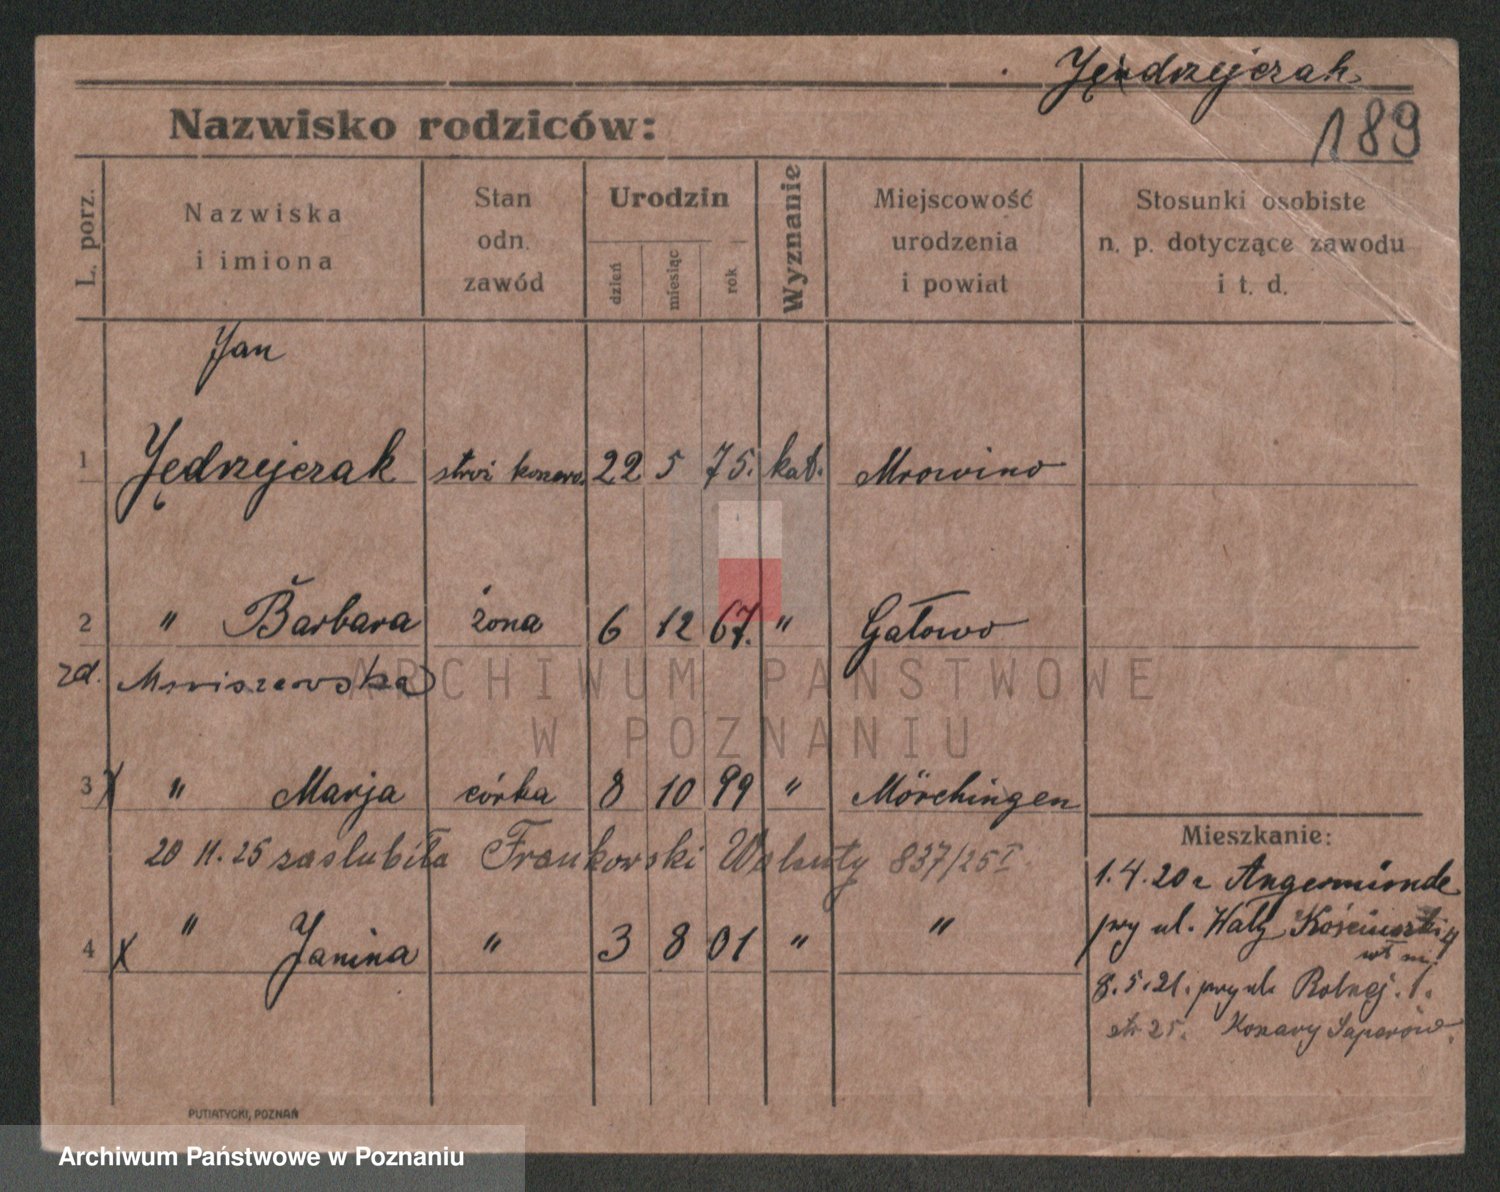 Jędrzejczak
189
Nazwisko rodziców:
L. porz.
Nazwiska
i imiona
Stan
odn.
zawód
Urodzin
dzień
miesiąc
rok
Wyznanie
Miejscowość
urodzenia
i powiat
Stosunki osobiste
n. p. dotyczące zawodu
i t. d.
Jan
1 Jędrzejczak stróż koszaro. 22 5 75. kat. Mrowino
2 " Barbara żona 6 12 67. " Gałowo
zd. Mruszewska
3 x " Marja córka 8 10 99 " Mörchingen
20 11. 25 zaslubiła Frankowski Walenty 837/25 I
4 x " Janina " 3 8 01 " "
Mieszkanie:
1.4.20 z Angermünde
przy ul. Wały Kościuszki
8.5.21. przy ul. Rolnej. 1.
str. 25. Koszary Saperów.
PUTIATYCKI, POZNAŃ
ARCHIWUM PAŃSTWOWE
W POZNANIU
Archiwum Państwowe w Poznaniu